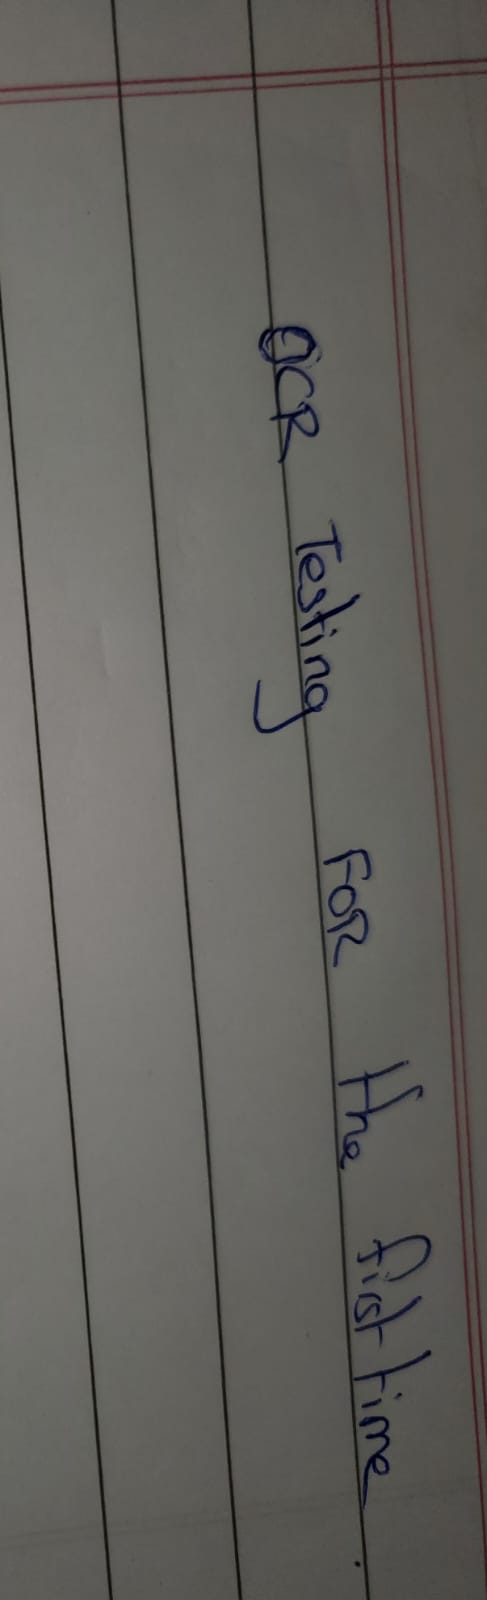 OCR Testing FOR the first time.